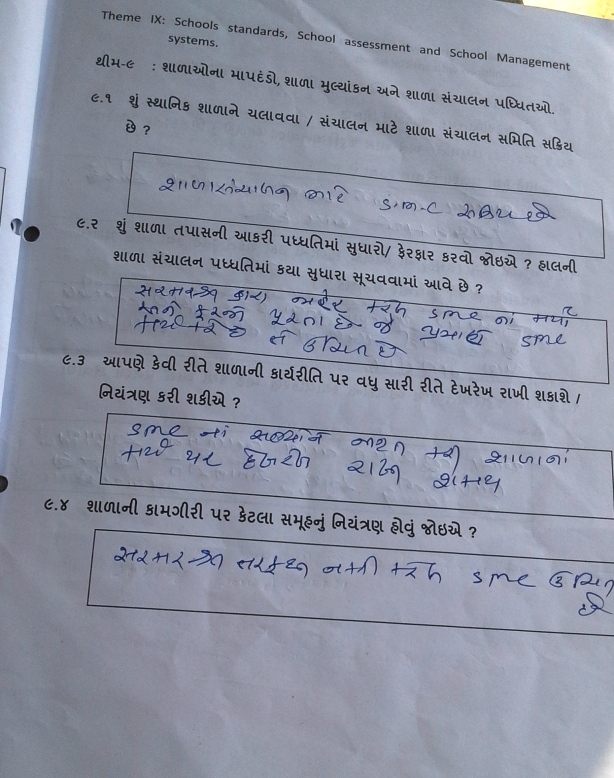 Theme IX: Schools standards, School assessment and School Management
systems.
થીમ-૯ : શાળાઓના માપદંડો, શાળા મુલ્યાંકન અને શાળા સંચાલન પધ્ધિતઓ.
૯.૧ શું સ્થાનિક શાળાને ચલાવવા / સંચાલન માટે શાળા સંચાલન સમિતિ સક્રિય
છે ?
શાળા સંચાલન માટે S.M.C સક્રિય છે
૯.૨ શું શાળા તપાસની આકરી પધ્ધતિમાં સુધારો/ ફેરફાર કરવો જોઇએ ? હાલની
શાળા સંચાલન પધ્ધતિમાં કયા સુધારા સૂચવવામાં આવે છે ?
સરકારશ્રી દ્વારા SMC નાં કાર્યો
અને ફરજો છે જે પ્રમાણે SMC
કાર્ય કરે છે તે ઉચિત છે
૯.૩ આપણે કેવી રીતે શાળાની કાર્યરીતિ પર વધુ સારી રીતે દેખરેખ રાખી શકાશે /
નિયંત્રણ કરી શકીએ ?
SMC નાં સભ્યોને કરી શાળાનાં
કાર્ય પર દેખરેખ રાખી શકાય
૯.૪ શાળાની કામગીરી પર કેટલા સમૂહનું નિયંત્રણ હોવું જોઇએ ?
સરકારશ્રી તરફથી SMC ઉચિત
છે